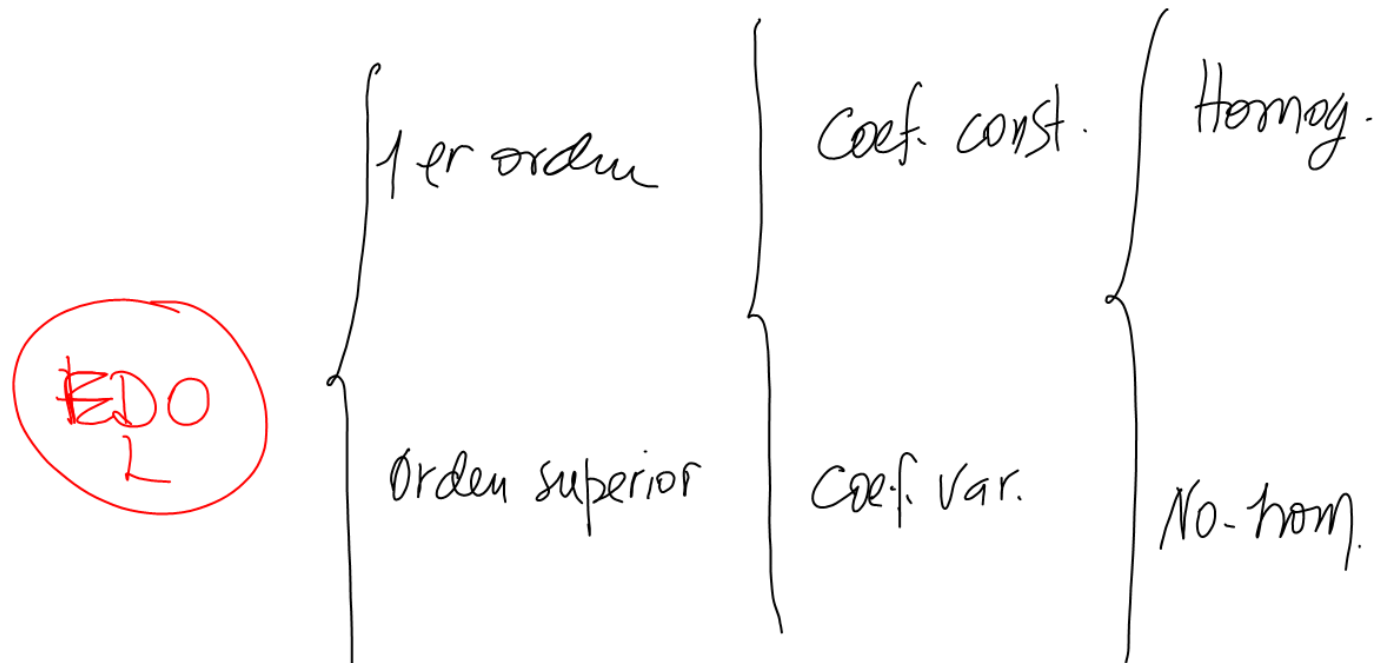 EDO
L
1er orden
Orden superior
Coef. const.
Coef. Var.
Homog.
No-hom.